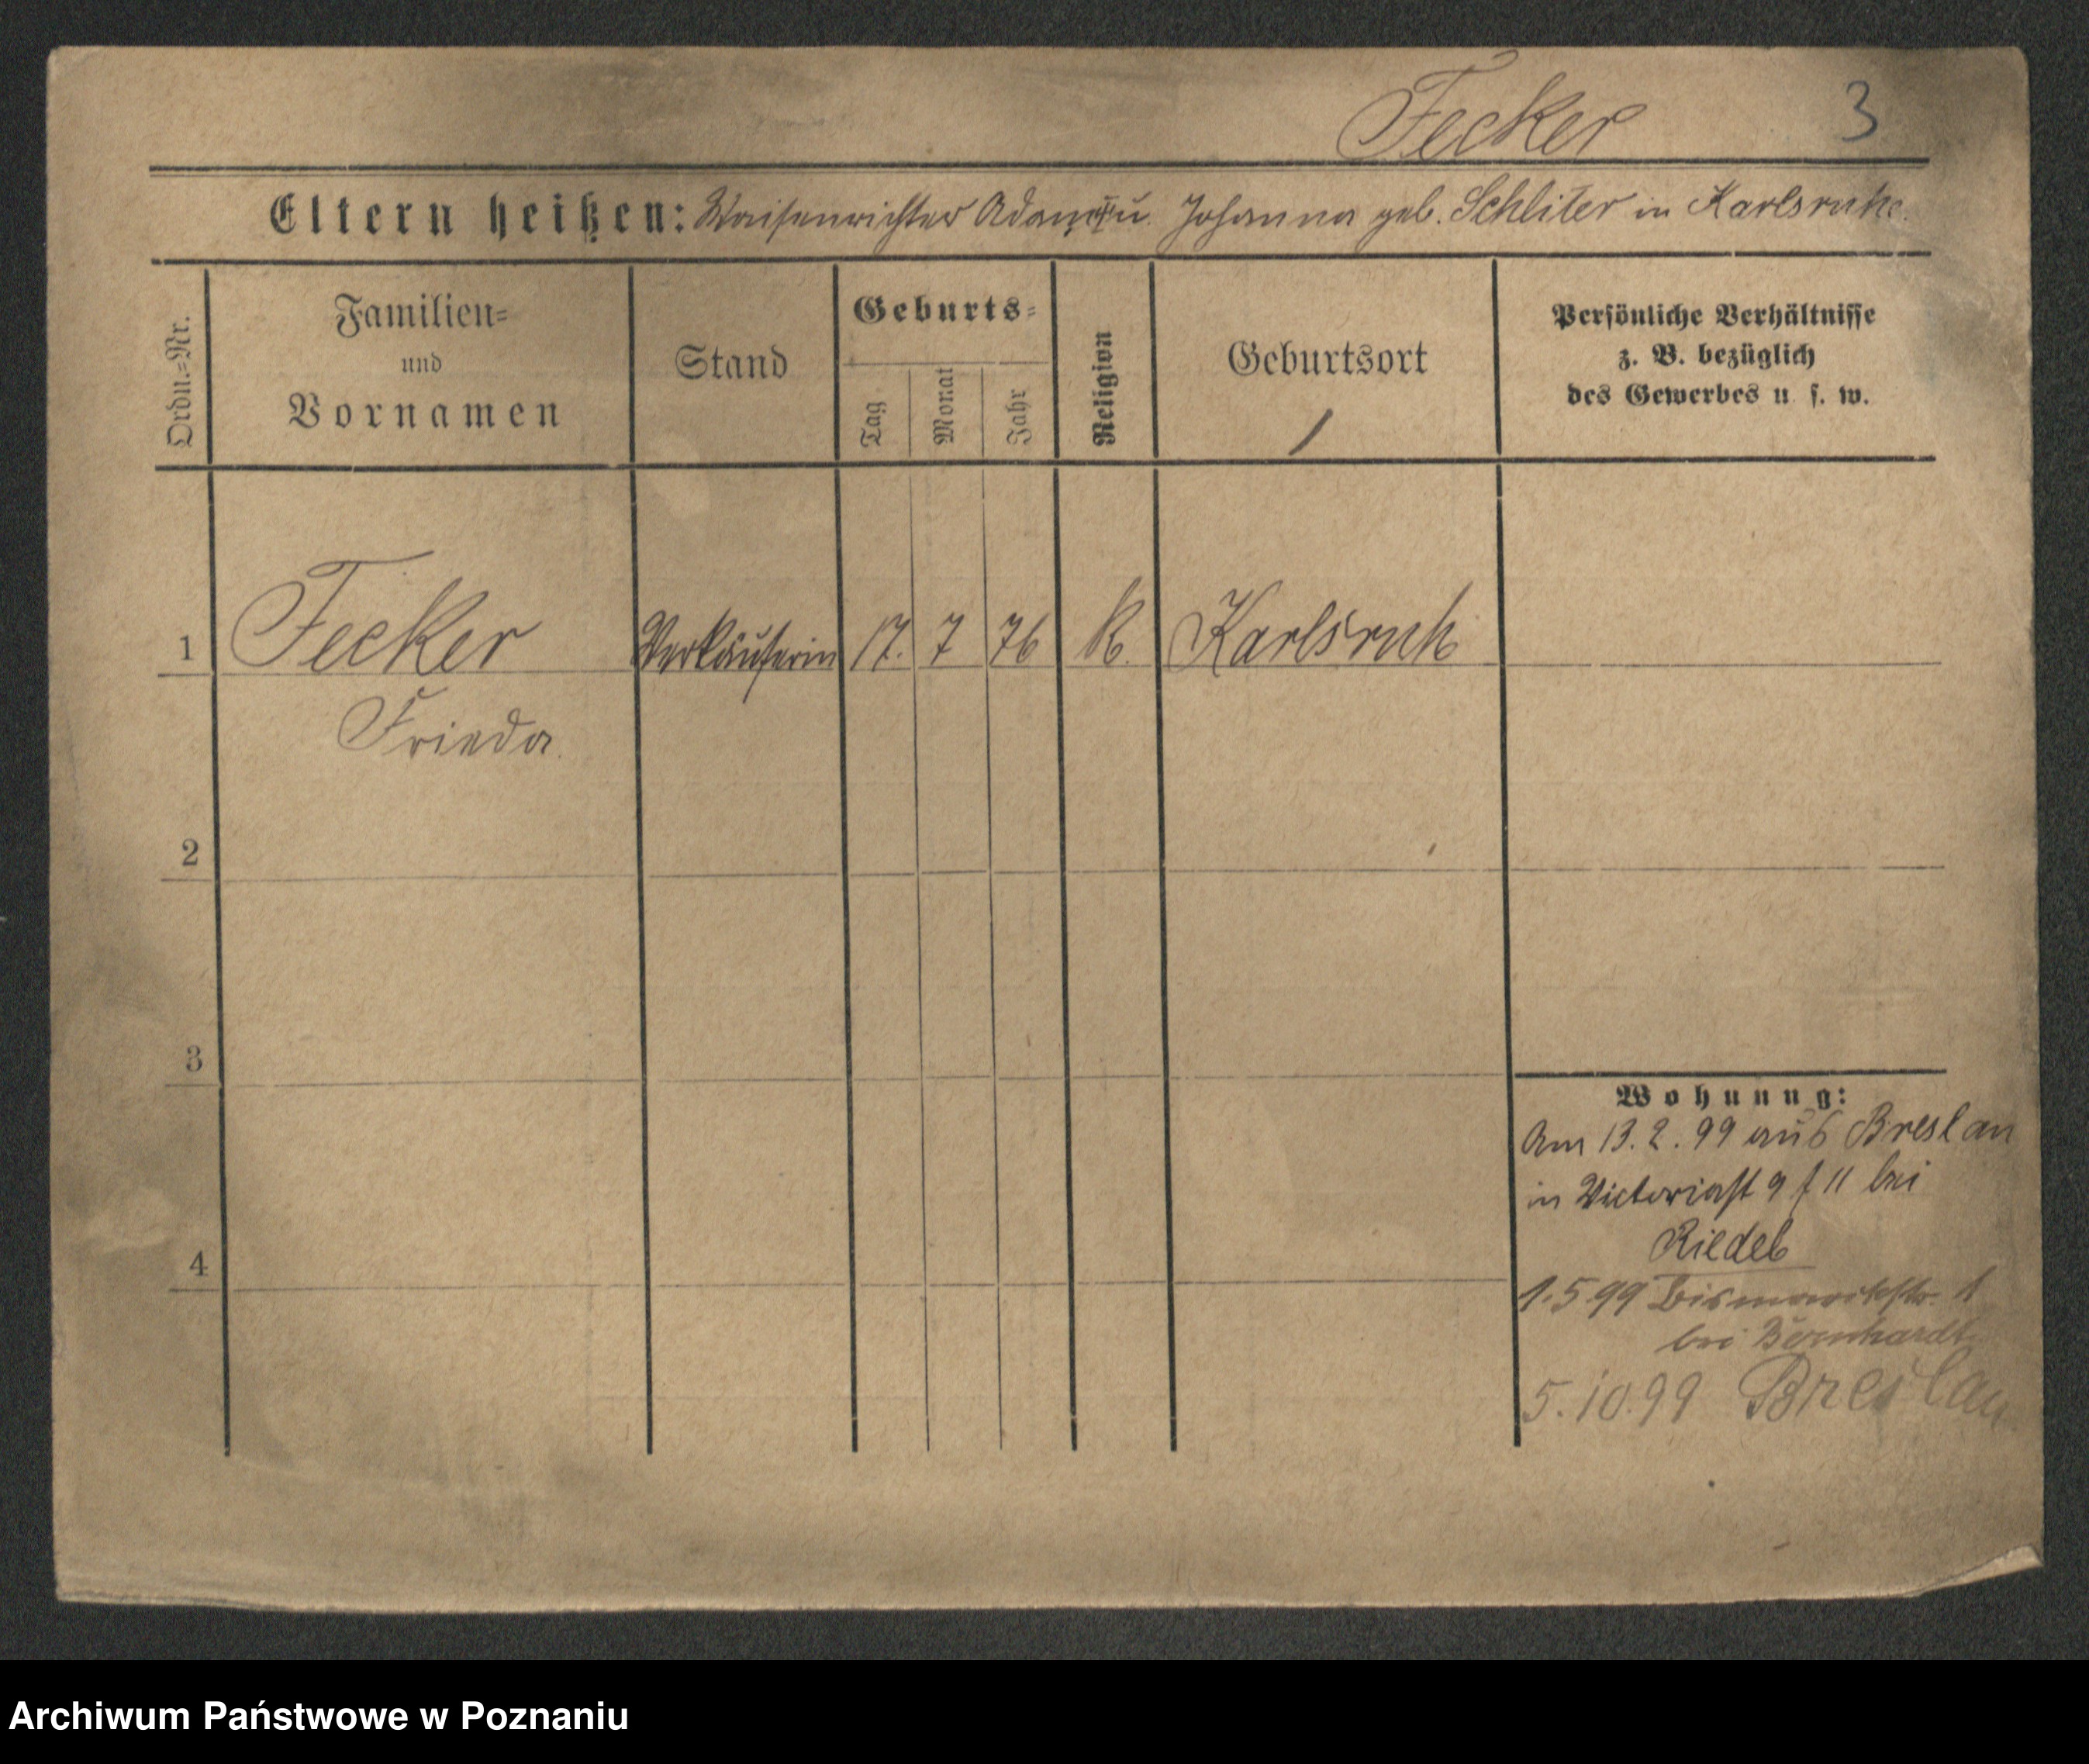 Fecker 3
Eltern heißen: Waisenrichter Adam u. Johanna geb. Schliter in Karlsruhe.
Ordn.=Nr.
Familien=
und
Vornamen
Stand
Geburts=
Tag
Monat
Jahr
Religion
Geburtsort
Persönliche Verhältnisse
z. B. bezüglich
des Gewerbes u. s. w.
1 Fecker Verkäuferin 17. 7 76 K. Karlsruh
Frieda
2
3
4
Wohnung:
Am 13.2.99 aus Breslau
in Victoriast 9 f 11 bei
Riedel
1.5 99 Bismarckstr. 1
bei Bernhardt
5.10.99 Breslau
Archiwum Państwowe w Poznaniu